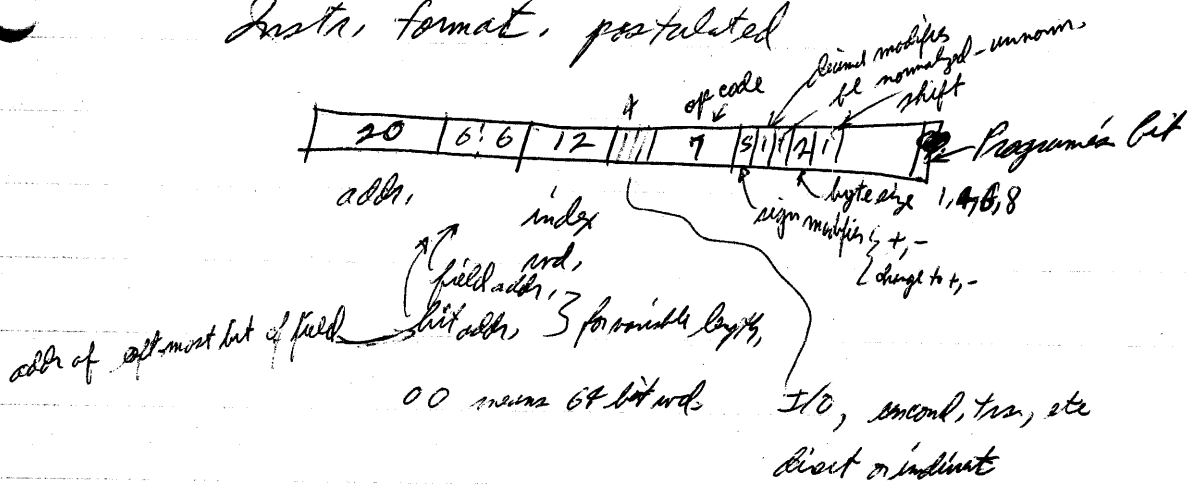 Instr. format. postulated
decimal modifier
fl normalized - unnorm.
shift
4
op code
20 6 6 12 7 S 1 1 2 1
Programer's bit
addr.
index
wd.
byte size 1,4,6,8
sign modifier { +, -
{ change to +, -
field addr.
bit addr. } for variable length.
addr of left-most bit of field
00 means 64 bit wd.
I/O, uncond, trsn, etc
direct or indirect